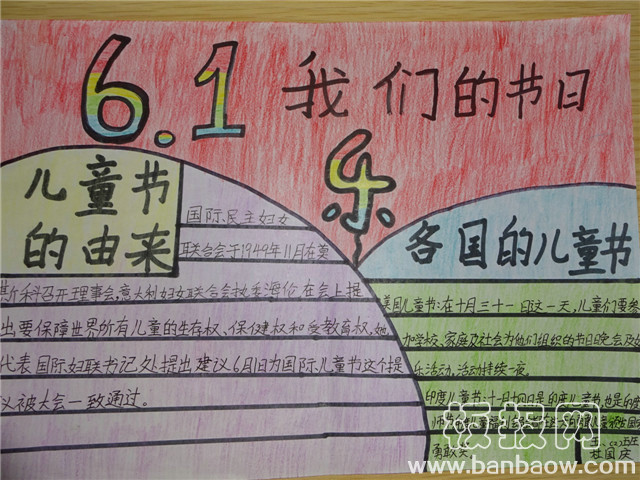 6.1 我们的节日
乐
儿童节
的由来
国际民主妇女
联合会于1949年11月在莫
斯科召开理事会,意大利妇女联合会执委海伦在会上提
出要保障世界所有儿童的生存权、保健权和受教育权,她
代表国际妇联书记处提出建议6月1日为国际儿童节这个提
议被大会一致通过。
各国的儿童节
美国儿童节:在十月三十一日这一天,儿童们要参
加学校、家庭及社会为他们组织的节日晚会及娱
乐活动,活动持续一夜。
印度儿童节:十一月十四日是印度儿童节,也是印度
勇敢奖。
板报网
www.banbaow.com